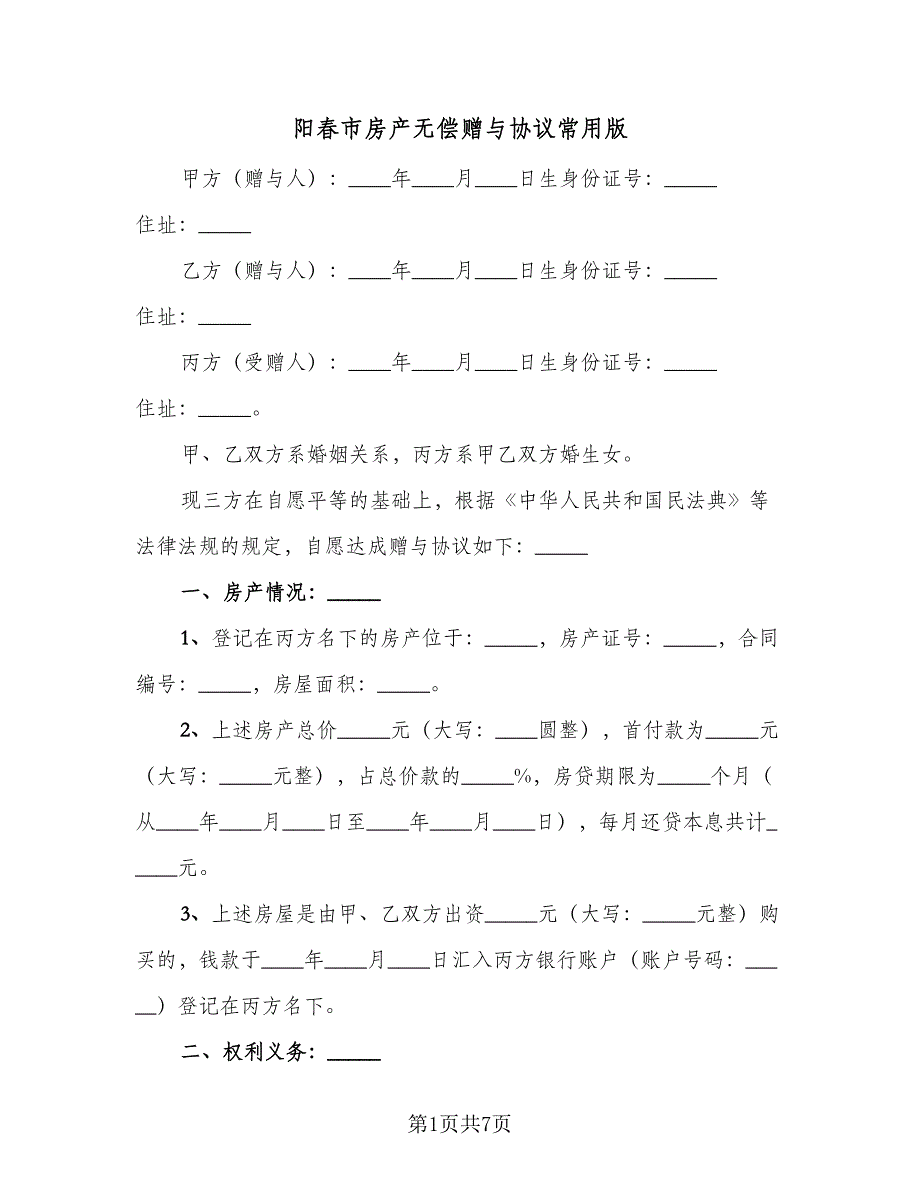 阳春市房产无偿赠与协议常用版
甲方（赠与人）：____年____月____日生身份证号：_____
住址：_____
乙方（赠与人）：____年____月____日生身份证号：_____
住址：_____
丙方（受赠人）：____年____月____日生身份证号：_____
住址：_____。
甲、乙双方系婚姻关系，丙方系甲乙双方婚生女。
现三方在自愿平等的基础上，根据《中华人民共和国民法典》等
法律法规的规定，自愿达成赠与协议如下：_____
一、房产情况：_____
1、登记在丙方名下的房产位于：_____，房产证号：_____，合同
编号：_____，房屋面积：_____。
2、上述房产总价_____元（大写：_____圆整），首付款为_____元
（大写：_____元整），占总价款的_____%，房贷期限为_____个月（
从____年____月____日至____年____月____日），每月还贷本息共计_
____元。
3、上述房屋是由甲、乙双方出资_____元（大写：_____元整）购
买的，钱款于____年____月____日汇入丙方银行账户（账户号码：___
__）登记在丙方名下。
二、权利义务：_____
第1页共7页